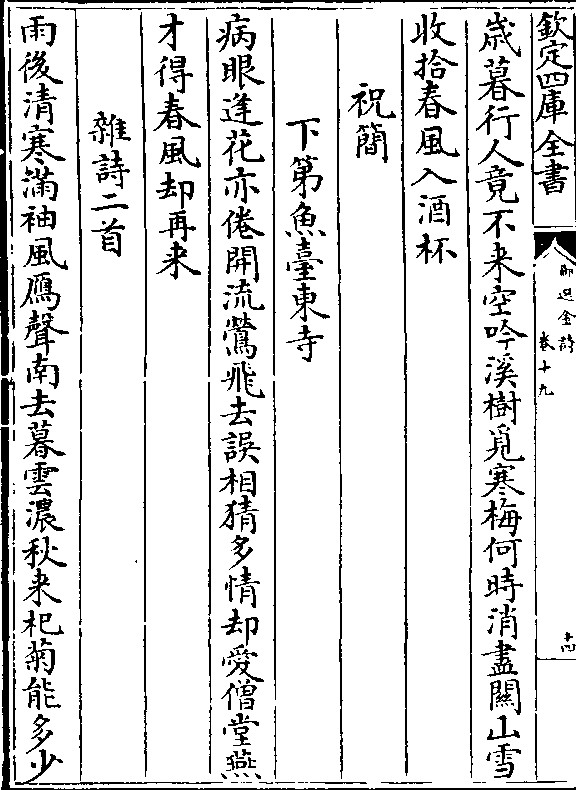 欽定四庫全書
御選金詩
卷十九
十四
歲暮行人竟不来空吟溪樹覓寒梅何時消盡關山雪
收拾春風入酒杯
祝簡
下第魚臺東寺
病眼逢花亦倦開流鶯飛去誤相猜多情却愛僧堂燕
才得春風却再来
雜詩二首
雨後清寒滿袖風鴈聲南去暮雲濃秋来杞菊能多少